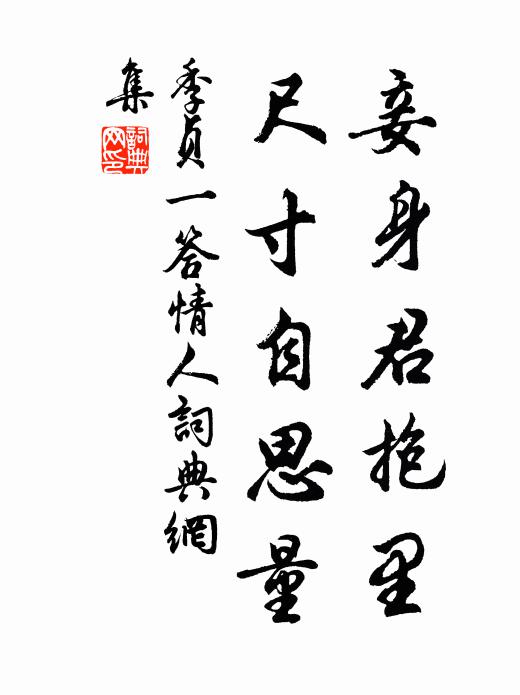 妾身君抱里
尺寸自思量
季貞一答情人詞典網
集
詞典
网印